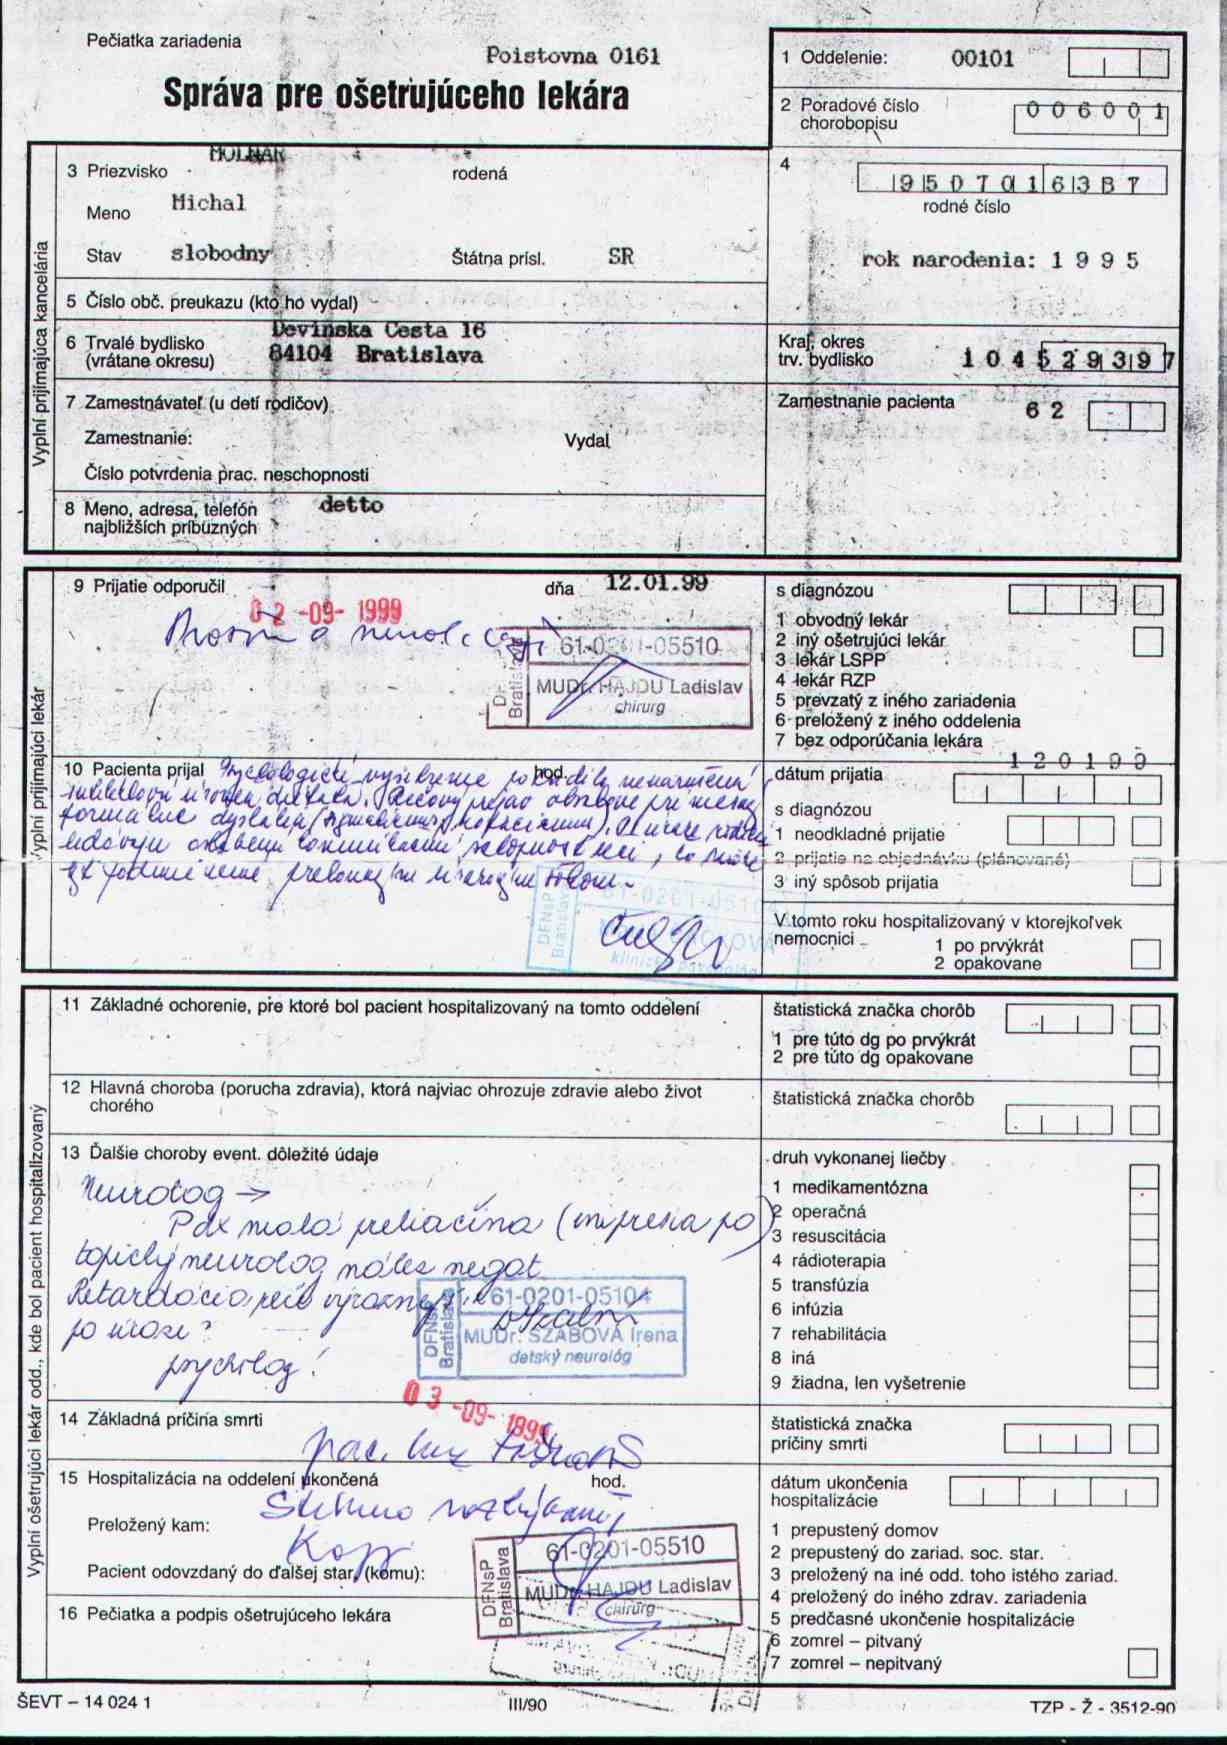 Pečiatka zariadenia
Poistovna 0161
Správa pre ošetrujúceho lekára
1 Oddelenie: 00101
2 Poradové číslo chorobopisu
006001
Vyplní prijímajúca kancelária
MOLNAR
3 Priezvisko
rodená
Meno Michal
Stav slobodny
Štátna prísl. SR
4
950701638 7
rodné číslo
rok narodenia: 1995
5 Číslo obč. preukazu (kto ho vydal)
6 Trvalé bydlisko
(vrátane okresu)
Devinska Cesta 16
84104 Bratislava
Kraj, okres
trv. bydlisko
104529397
7 Zamestnávateľ (u detí rodičov)
Zamestnanie:
Vydal
Číslo potvrdenia prac. neschopnosti
Zamestnanie pacienta 62
8 Meno, adresa, telefón
najbližších príbuzných
detto
Vyplní prijímajúci lekár
9 Prijatie odporučil
dňa 12.01.99
02 -09- 1999
Prosím o
DFNsP
Bratislava
61-0201-05510
MUDr. HAJDU Ladislav
chirurg
s diagnózou
1 obvodný lekár
2 iný ošetrujúci lekár
3 lekár LSPP
4 lekár RZP
5 prevzatý z iného zariadenia
6 preložený z iného oddelenia
7 bez odporúčania lekára
10 Pacienta prijal
hod.
Psychologické vyšetrenie
úroveň dieťaťa. Rečový prejav obsahove
formálne dyslália
DFNsP
Bratislava
61-0201-05104
120199
dátum prijatia
s diagnózou
1 neodkladné prijatie
2 prijatie na objednávku (plánované)
3 iný spôsob prijatia
V tomto roku hospitalizovaný v ktorejkoľvek
nemocnici
1 po prvýkrát
2 opakovane
Vyplní ošetrujúci lekár odd., kde bol pacient hospitalizovaný
11 Základné ochorenie, pre ktoré bol pacient hospitalizovaný na tomto oddelení
štatistická značka chorôb
1 pre túto dg po prvýkrát
2 pre túto dg opakovane
12 Hlavná choroba (porucha zdravia), ktorá najviac ohrozuje zdravie alebo život
chorého
štatistická značka chorôb
13 Ďalšie choroby event. dôležité údaje
Neurolog →
Pax malá preliačina (impresia po)
topický neurolog nález negat.
Retardácia reči
po úraze?
psycholog!
DFNsP
Bratislava
61-0201-05104
MUDr. SZABOVÁ Irena
detský neurológ
druh vykonanej liečby
1 medikamentózna
2 operačná
3 resuscitácia
4 rádioterapia
5 transfúzia
6 infúzia
7 rehabilitácia
8 iná
9 žiadna, len vyšetrenie
03 -09- 1999
14 Základná príčina smrti
štatistická značka
príčiny smrti
15 Hospitalizácia na oddelení ukončená
hod.
dátum ukončenia
hospitalizácie
Preložený kam:
Pacient odovzdaný do ďalšej star. (komu):
DFNsP
Bratislava
61-0201-05510
MUDr. HAJDU Ladislav
chirurg
16 Pečiatka a podpis ošetrujúceho lekára
1 prepustený domov
2 prepustený do zariad. soc. star.
3 preložený na iné odd. toho istého zariad.
4 preložený do iného zdrav. zariadenia
5 predčasné ukončenie hospitalizácie
6 zomrel – pitvaný
7 zomrel – nepitvaný
ŠEVT – 14 024 1
III/90
TZP - Ž - 3512-90